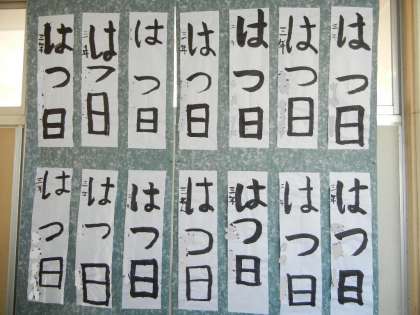 はつ日
はつ日
はつ日
はつ日
はつ日
はつ日
はつ日
はつ日
はつ日
はつ日
はつ日
はつ日
はつ日
はつ日